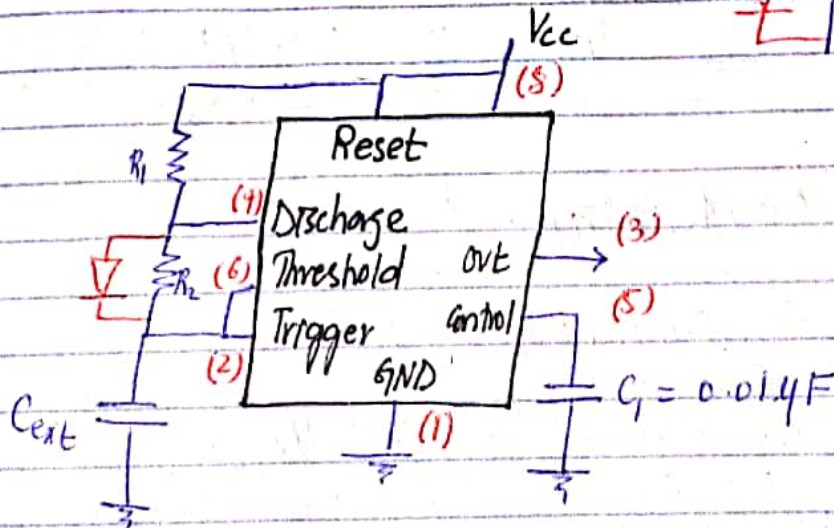 Vcc
(8)
Reset
R1
(7)
Discharge
(3)
(6)
Threshold
out
R2
(5)
Trigger
Control
(2)
GND
Cext
C1 = 0.01µF
(1)